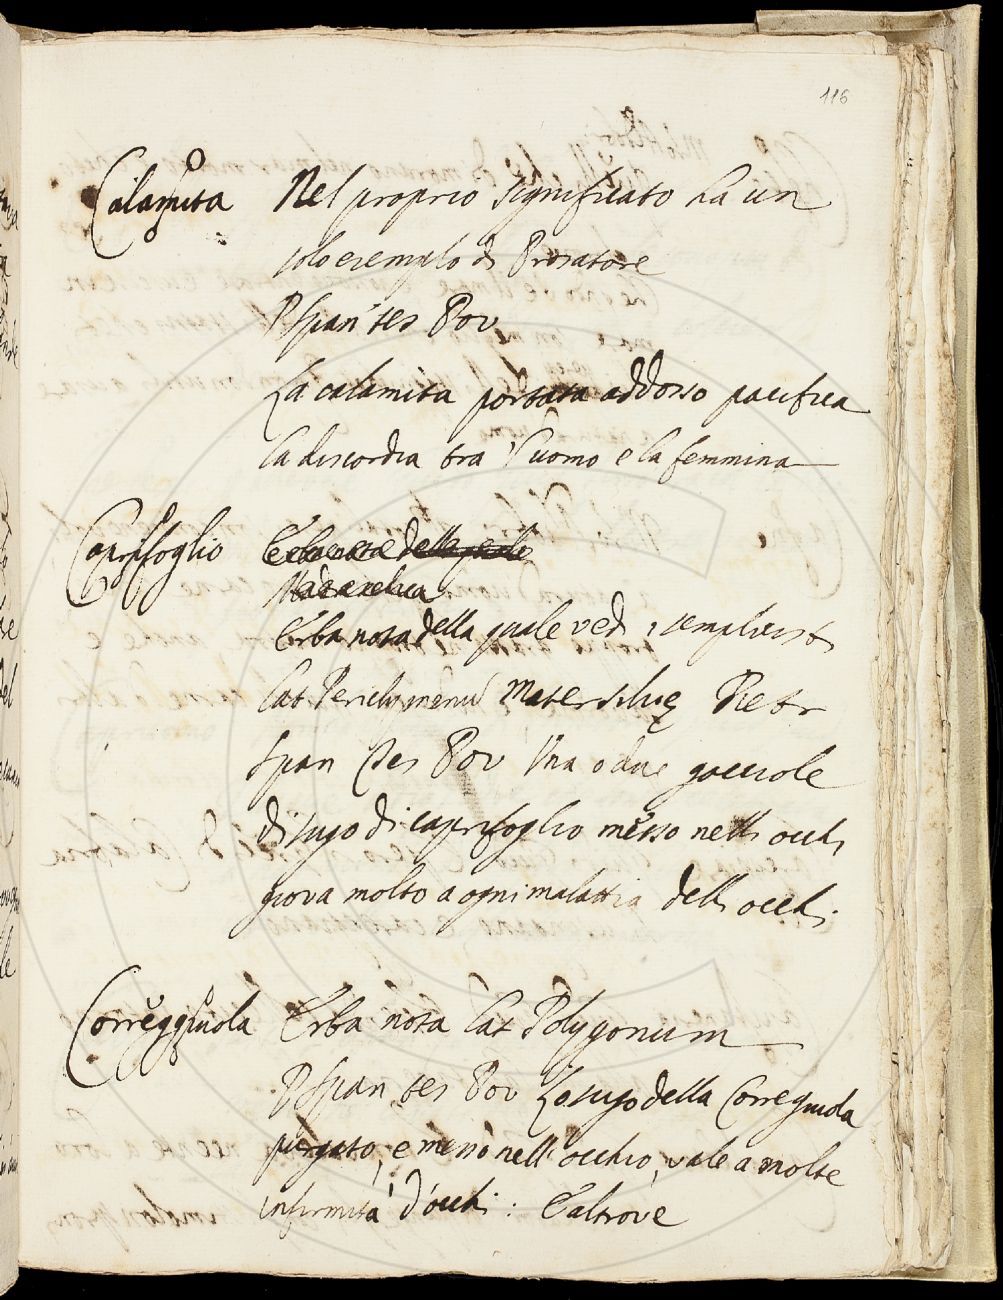 116
Calamita Nel proprio significato ha un
solo esemplo di Prosatore
P Span tes Pov
La calamita portata addosso pacifica
la discordia tra l'uomo e la femmina
Caprifoglio Erba nota della quale
Erba nota della quale vedi i semplicisti
lat Periclymenū Matersilvę Pietr
Span Tes Pov Una o due gocciole
di sugo di caprifoglio mẽsso nelli occhi
giova molto a ogni malattia delli occhi.
Correggiuola Erba nota lat Polygonum
P Span tes Pov Lo sugo della Correggiuola
purgato, e messo nell'occhio, vale a molte
infirmità d'occhi: E altrove